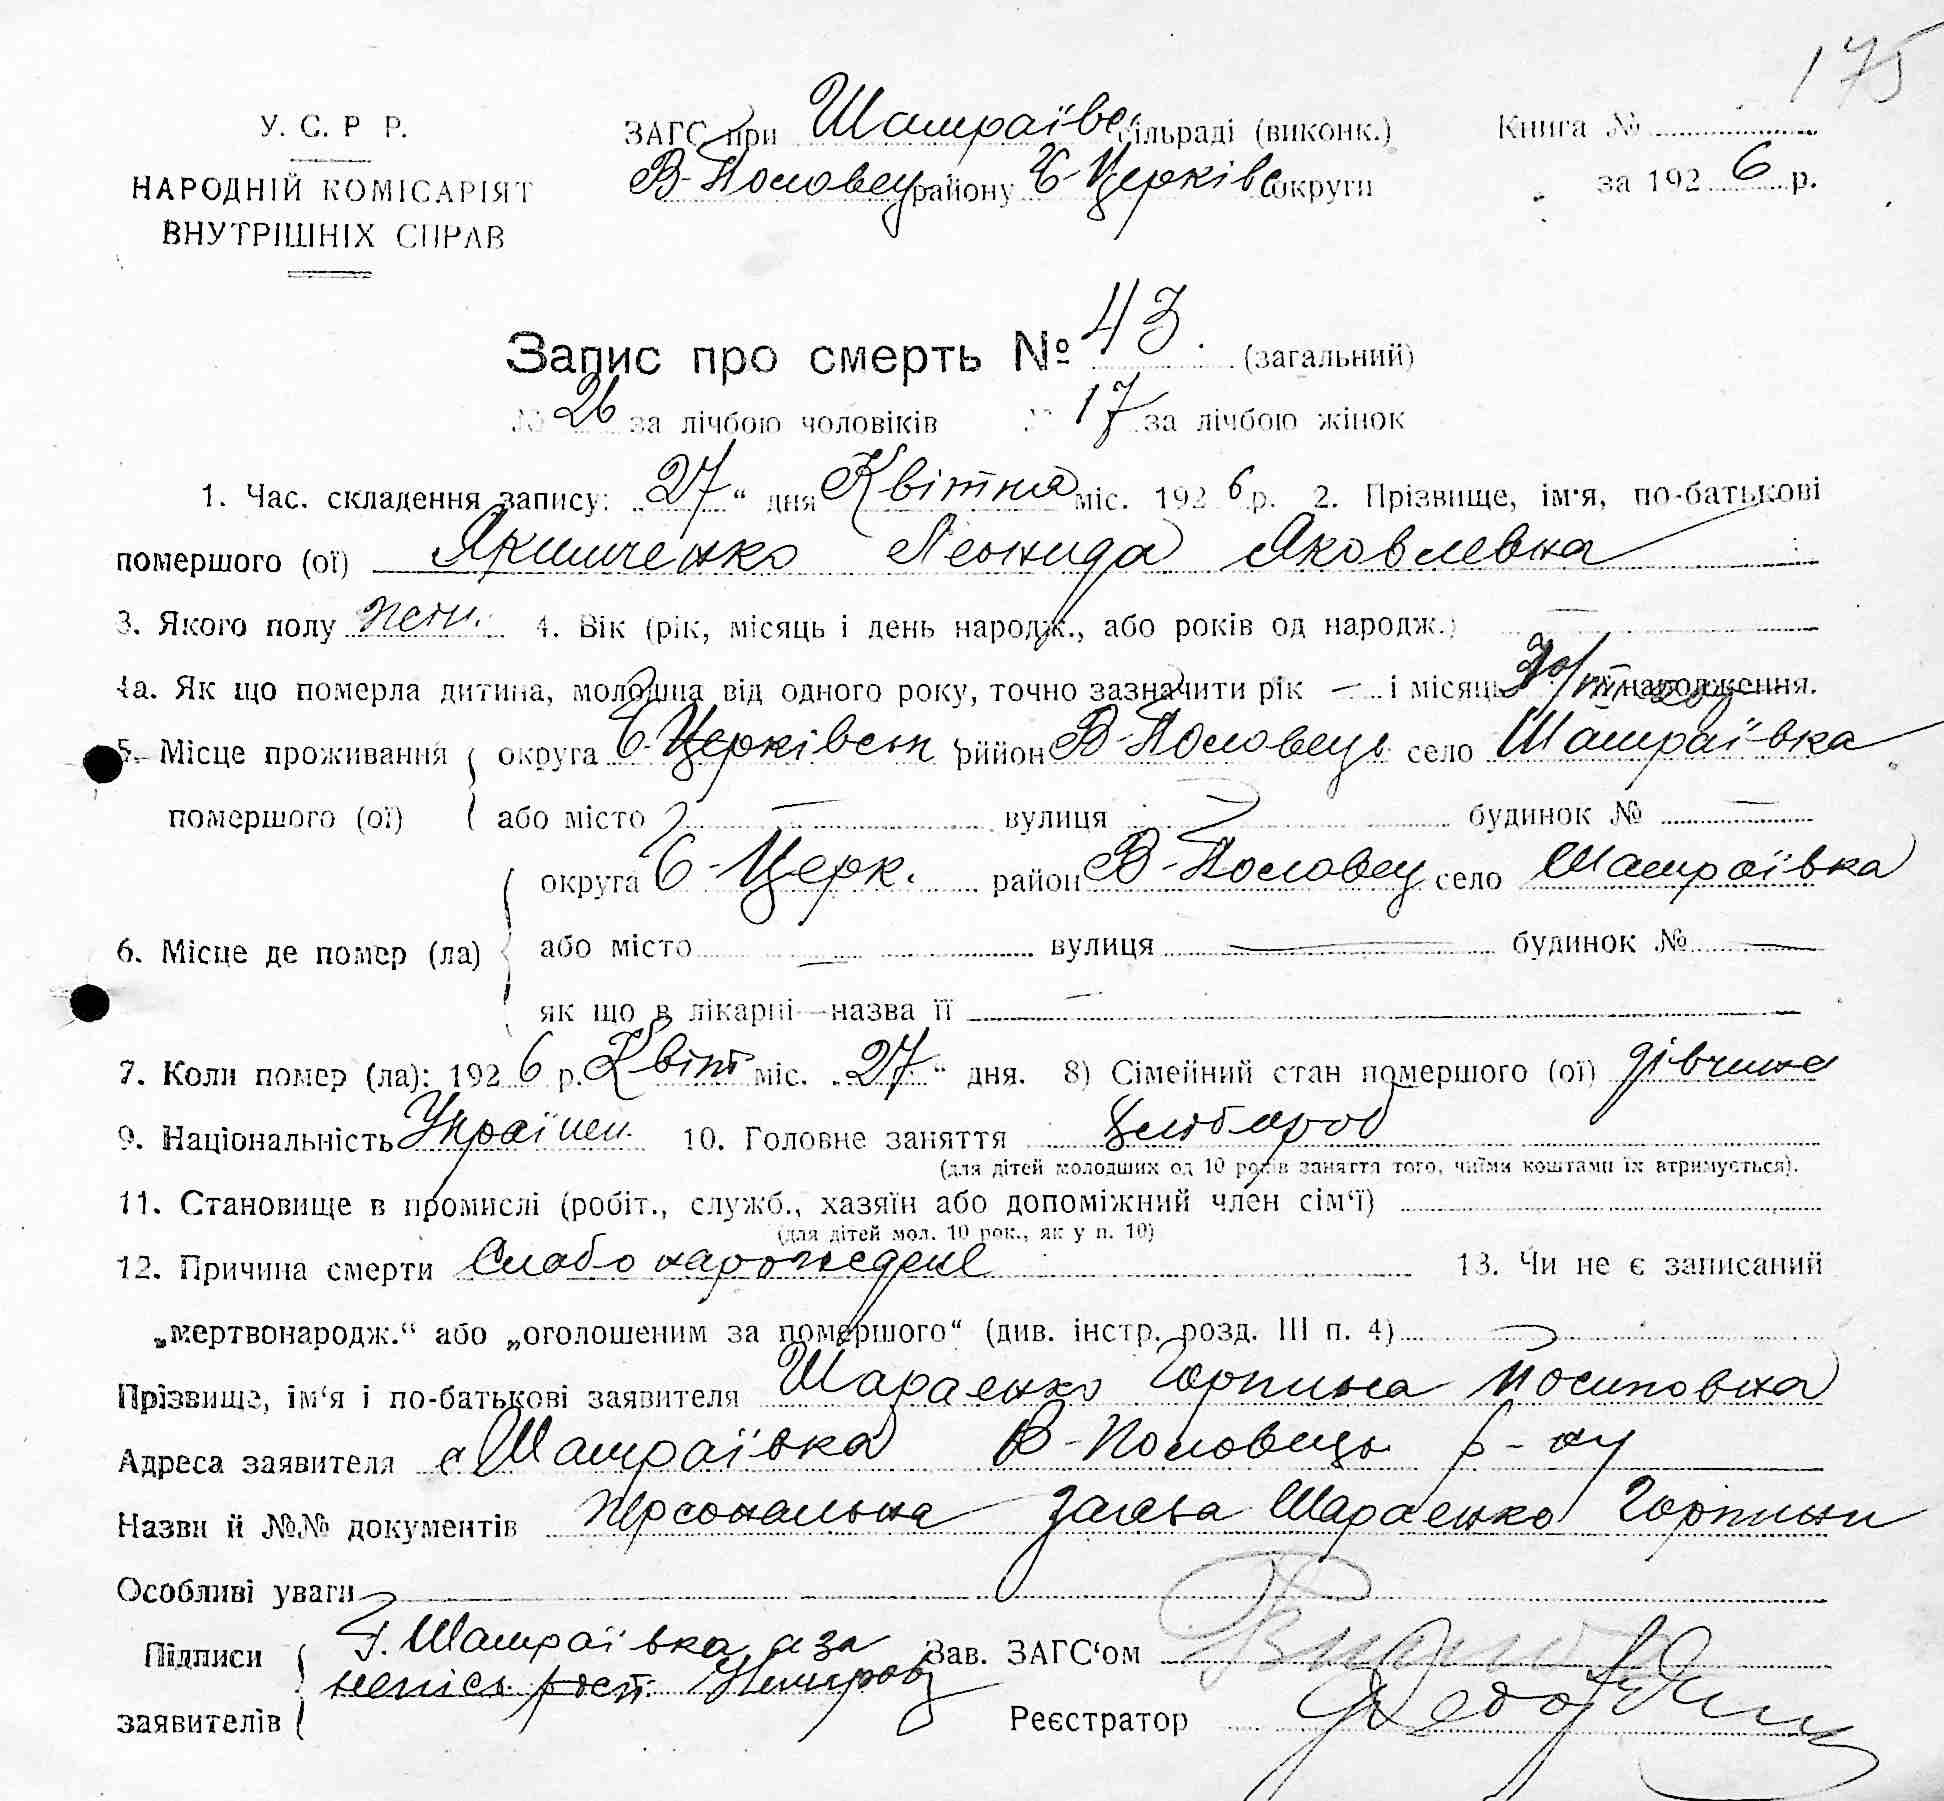 175
У. С. Р Р.
НАРОДНІЙ КОМІСАРІЯТ
ВНУТРІШНІХ СПРАВ
ЗАГС при Шамраївс. сільраді (виконк.)
В-Половец району Б-Церківс округи
Книга №
за 1926 р.
Запис про смерть № 43. (загальний)
№ 26 за лічбою чоловіків № 17 за лічбою жінок
1. Час. складення запису: 27 " дня Квітня міс. 1926 р. 2. Прізвище, ім'я, по-батькові
помершого (ої) Якимченко Леонида Яковлевна
3. Якого полу жен. 4. Вік (рік, місяць і день народж., або років од народж.) —
4а. Як що померла дитина, молодша від одного року, точно зазначити рік — і місяць народження.
5. Місце проживання округа Б-Церківськ рійон В-Половець село Шамраївка
помершого (ої) або місто — вулиця — будинок № —
округа Б-Церк. район В-Половец село Шамраївка
6. Місце де помер (ла) або місто — вулиця — будинок № —
як що в лікарні—назва її —
7. Коли помер (ла): 1926 р. Квіт міс. „27" дня. 8) Сімейний стан помершого (ої) дівчина
9. Національність Українец. 10. Головне заняття хлібороб
(для дітей молодших од 10 років заняття того, чиїми коштами їх втримується).
11. Становище в промислі (робіт., служб., хазяїн або допоміжний член сім'ї)
(для дітей мол. 10 рок., як у п. 10)
12. Причина смерти Слабо нарождене 13. Чи не є записаний
„мертвонародж." або „оголошеним за помершого" (див. інстр. розд. III п. 4) —
Прізвище, ім'я і по-батькові заявителя Шараенко Горпина Йосиповна
Адреса заявителя с Шамраївка В-Половець р-ну
Назви й №№ документів персональна заява Шараенко Горпини
Особливі уваги
Підписи Г. Шамраївка а за Зав. ЗАГС'ом
непісь рост.
заявителів Реєстратор